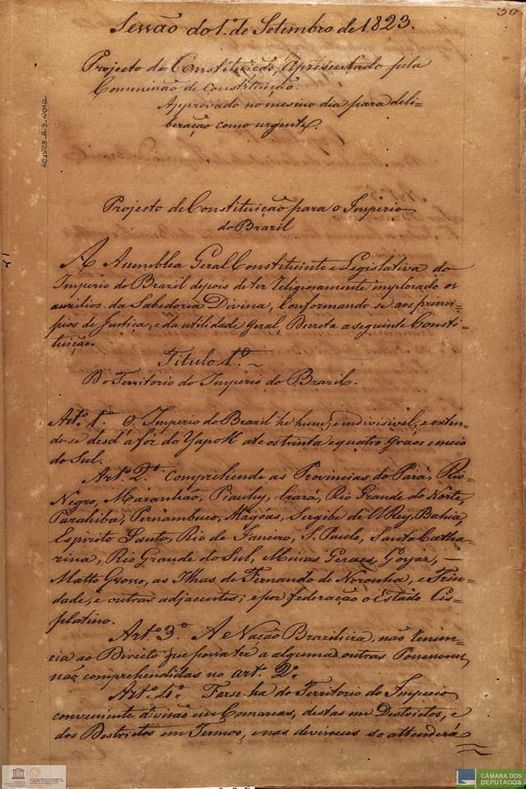 30
Sessão do 1º de Setembro de 1823.
Projecto de Constituição, Apresentado pela
Commissão de Constituição.
Approvado no mesmo dia para deli-
beração como urgente.
Projecto de Constituição para o Imperio
do Brazil
A Assemblea Geral Constituinte e Legislativa do
Imperio do Brazil depois de ter religiosamente implorado os
auxilios da Sabedoria Divina, Conformando-se aos princi-
pios de Justiça, e da utilidade geral, Decreta a seguinte Consti-
tuição.
Titulo 1º
Do Territorio do Imperio do Brazil.
Artº 1º O Imperio do Brazil he hum, e indivisivel, e esten-
de-se desd'a fóz do Yapok até os trinta e quatro graos e meio
do Sul.
Artº 2º Comprehende as Provincias do Pará, Rio
Negro, Maranhão, Piauhy, Ceará, Rio Grande do Norte,
Parahiba, Pernambuco, Alagôas, Sergipe de ElRey, Bahia,
Espirito Santo, Rio de Janeiro, S. Paulo, Santa Catha-
rina, Rio Grande do Sul, Minas Geraes, Goyaz,
Matto Grosso, as Ilhas de Fernando de Noronha, e Trin-
dade, e outras adjacentes; e por federação o Estado Cis-
platino.
Artº 3º A Nação Brazileira não renun-
cia ao Direito que possa ter a algumas outras Possessoens
não comprehendidas no art. 2º
Artº 4º Far-se-ha do Territorio do Imperio
conveniente divisão em Comarcas, destas em Destrictos, e
dos Destrictos em Termos, e nas divisoens se attenderá
CÂMARA DOS
DEPUTADOS